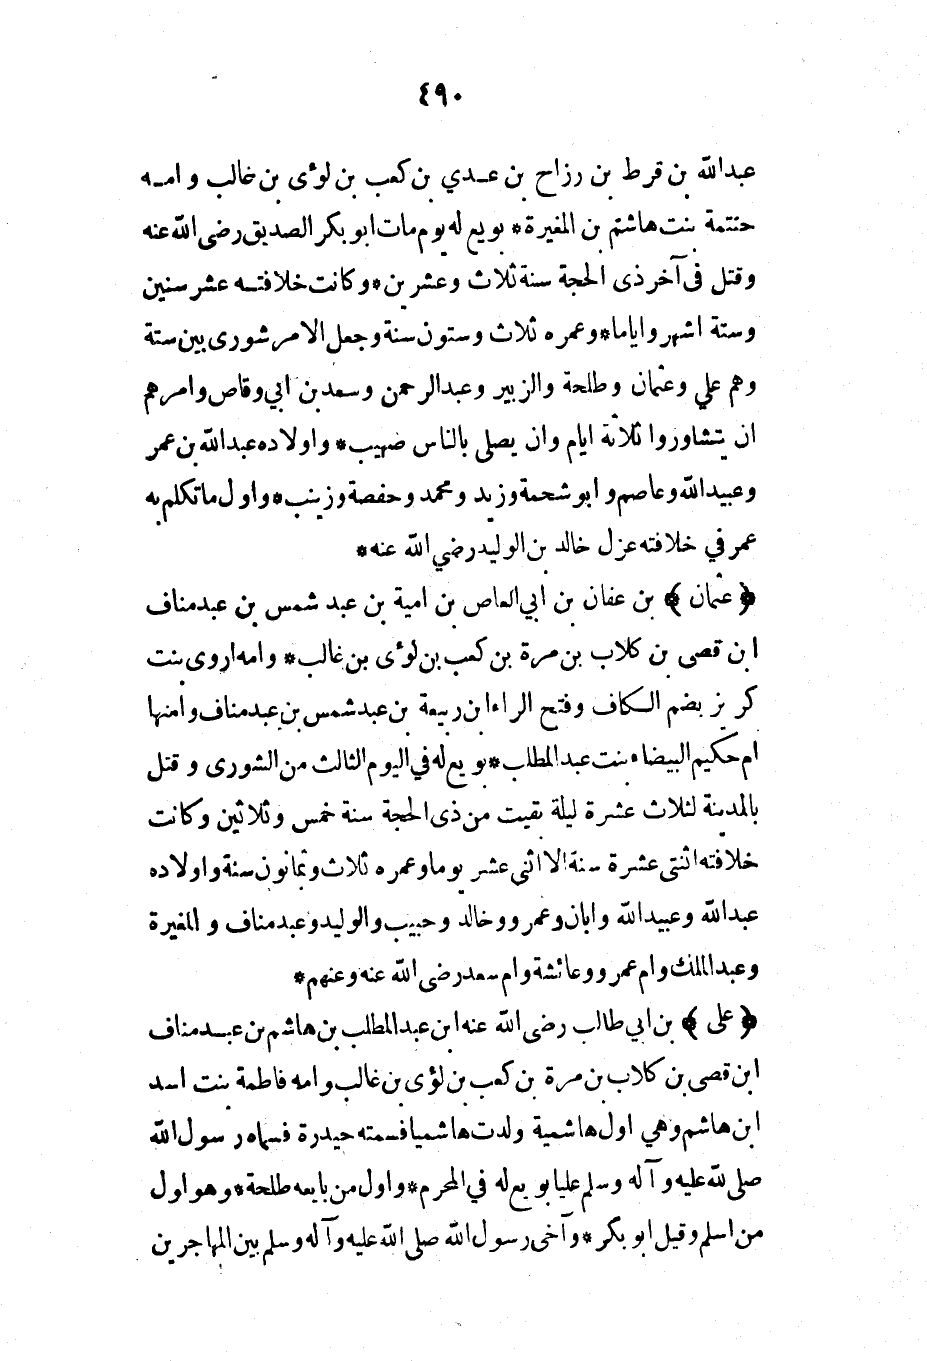 ٤٩٠
عبدالله بن قرط بن رزاح بن عدي بن كعب بن لوٴى بن خالب وامه
حنتمة بنت هاشم بن المغيرة* بويع له يوم مات ابو بكر الصديق رضى الله عنه
وقتل فى آخر ذى الحجة سنة ثلاث وعشرين*وكانت خلافته عشر سنين
وستة اشهر واياما*وعمره ثلاث وستون سنة وجعل الامر شورى بين ستة
وهم علي وعثمان وطلحة والزبير وعبدالرحمن وسعد بن ابي وقاص وامرهم
ان يتشاوروا ثلاثة ايام وان يصلى بالناس صهيب* واولاده عبدالله بن عمر
وعبيدالله وعاصم و ابو شحمة وزيد ومحمد وحفصة وزينب*واول ما تكلم به
عمر في خلافته عزل خالد بن الوليد رضي الله عنه*
﴿ عثمان ﴾ بن عفان بن ابي العاص بن امية بن عبد شمس بن عبد مناف
ابن قصى بن كلاب بن مرة بن كعب بن لوٴى بن غالب* وامه اروى بنت
كريز بضم الكاف وفتح الراء ابن ربيعة بن عبد شمس بن عبد مناف وامها
ام حكيم البيضاء بنت عبد المطلب*بويع له في اليوم الثالث من الشورى و قتل
بالمدينة لثلاث عشرة ليلة بقيت من ذى الحجة سنة خمس وثلاثين وكانت
خلافته اثنتى عشرة سنة الا اثني عشر يوما وعمره ثلاث وثمانون سنة واولاده
عبدالله وعبيدالله وابان وعمرو وخالد وحبيب والوليد وعبد مناف و المغيرة
وعبد الملك وام عمرو وعائشة وام سعد رضى الله عنه وعنهم*
﴿ على ﴾ بن ابي طالب رضى الله عنه ابن عبد المطلب بن هاشم بن عبد مناف
ابن قصى بن كلاب بن مرة بن كعب بن لؤى بن غالب وامه فاطمة بنت اسد
ابن هاشم وهي اول هاشمية ولدت هاشميا فسمته حيدرة فسماه رسول الله
صلى لله عليه و آله وسلم عليا بويع له في المحرم*واول من بايعه طلحة*وهو اول
من اسلم وقيل ابو بكر*وآخى رسول الله صلى الله عليه وآله وسلم بين المهاجرين